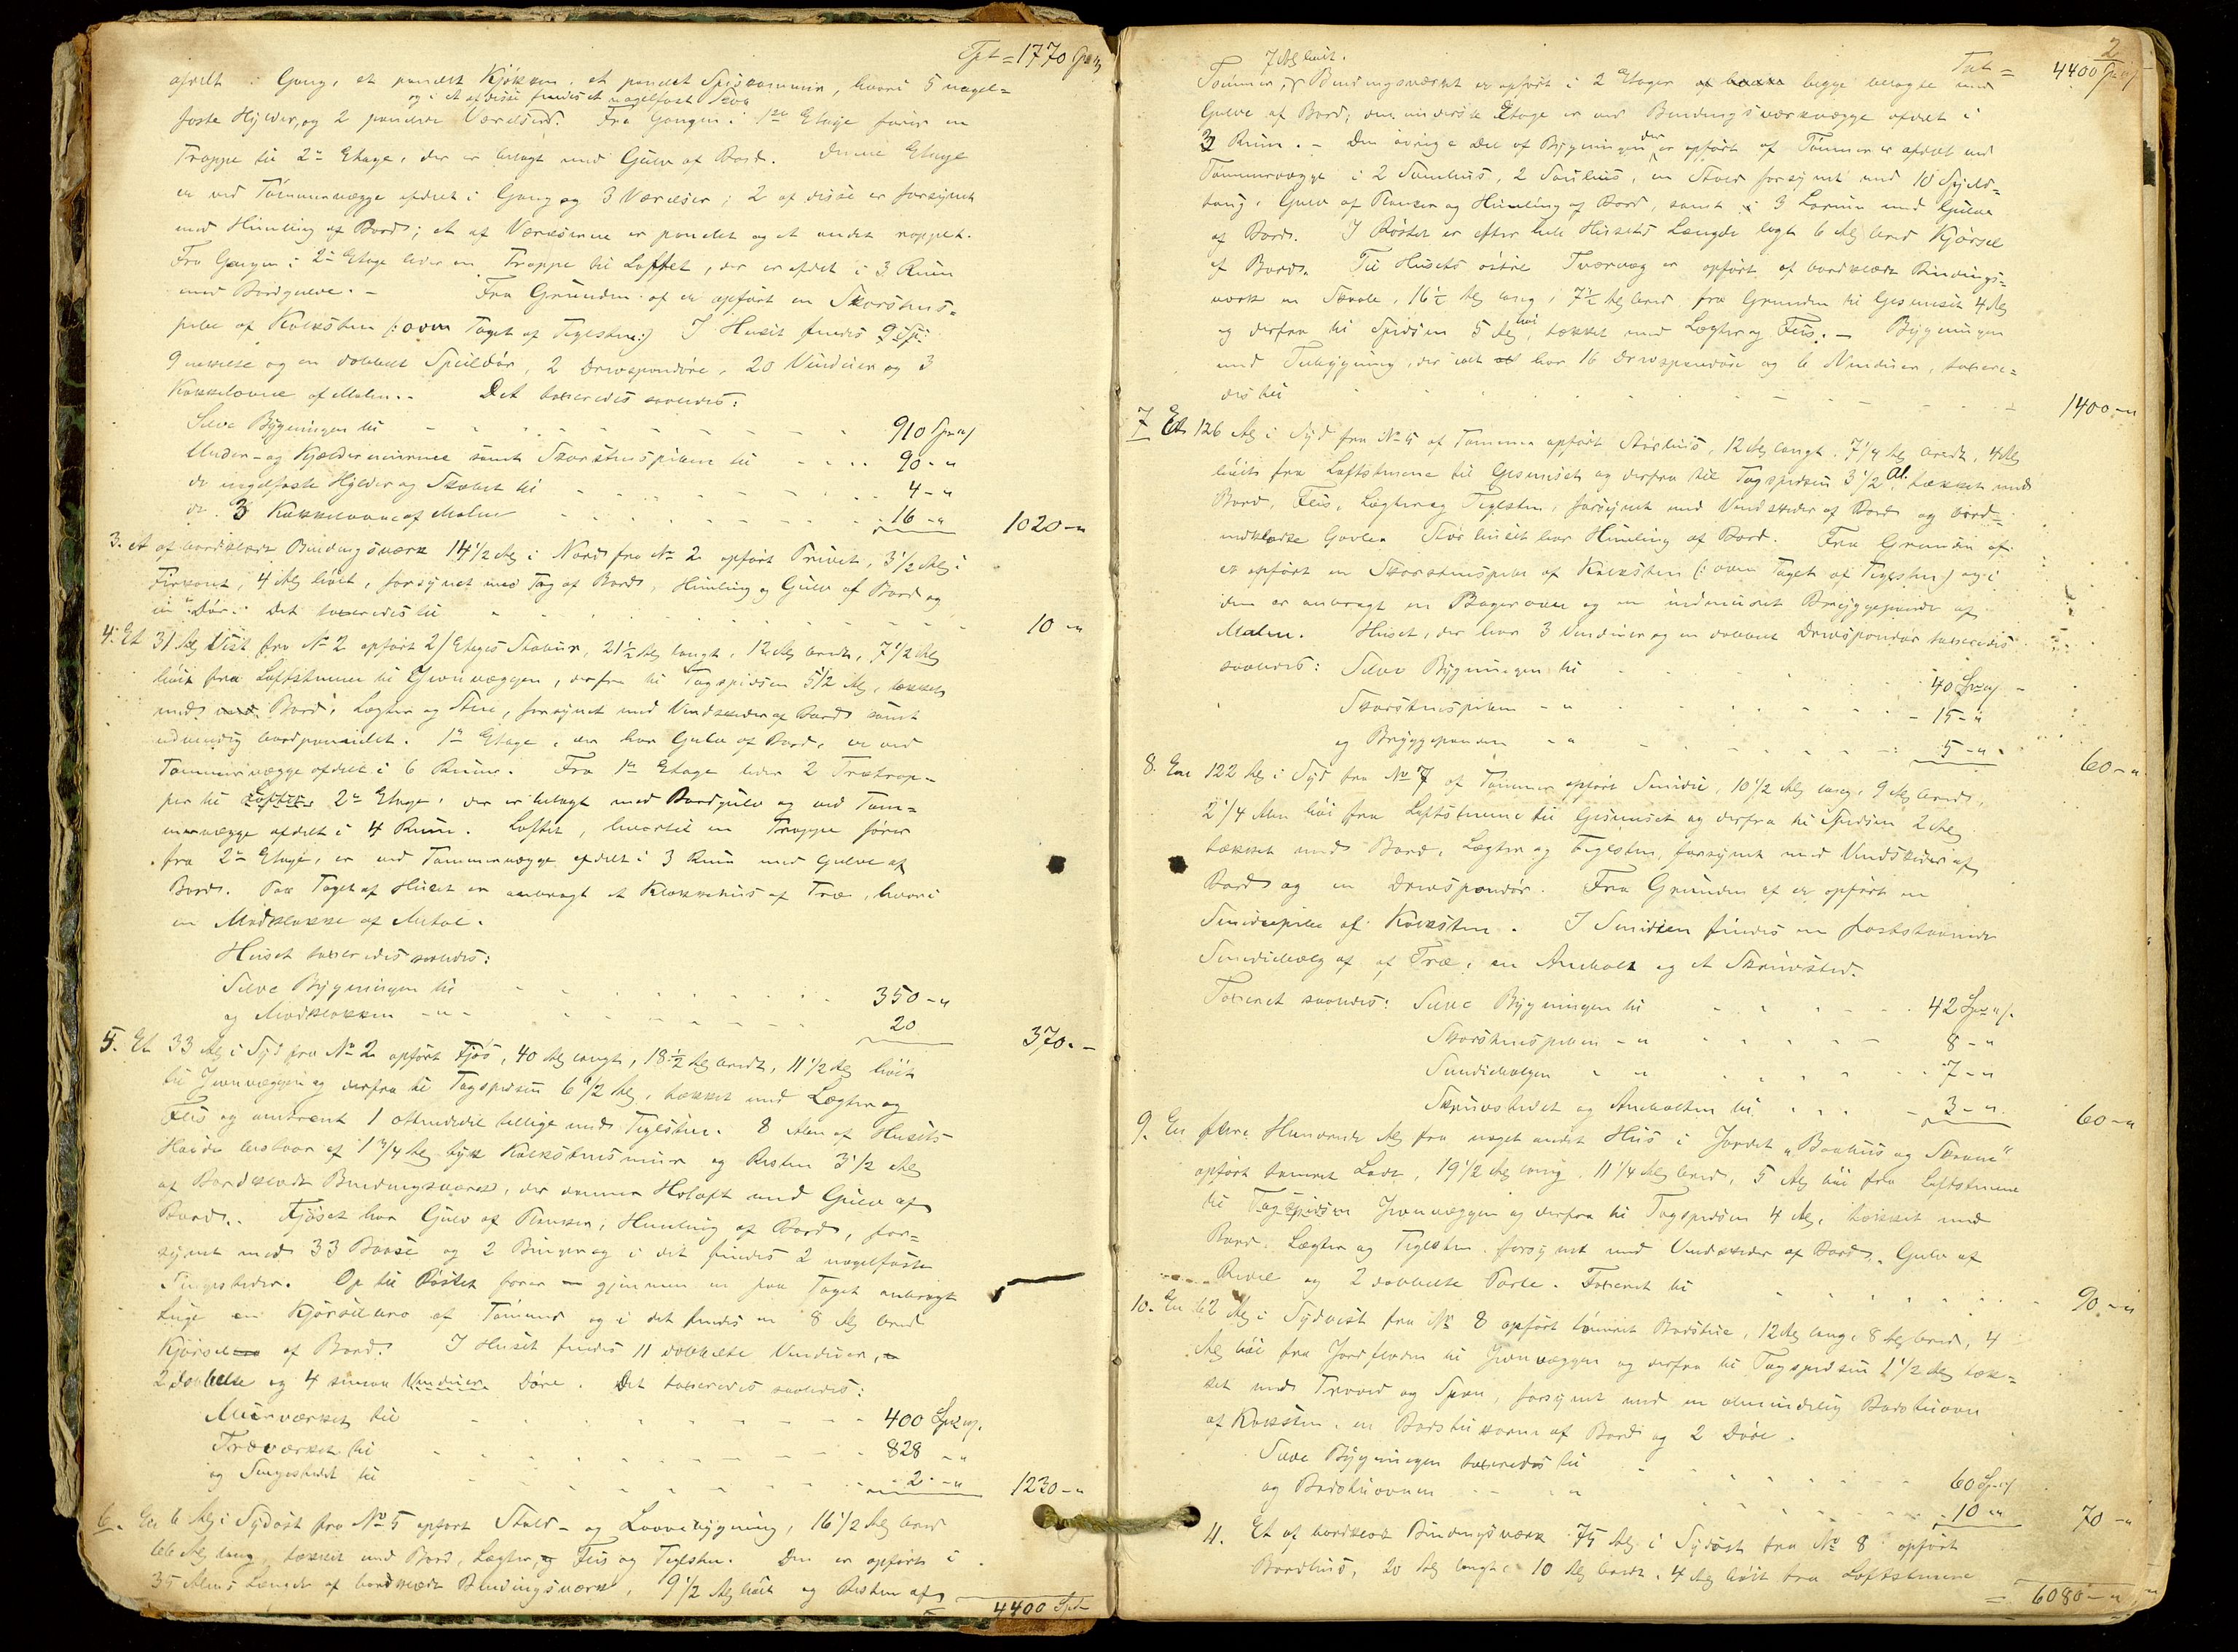 Tpt = 1770 Spd
afdelt i Gang, et panelet Kjøkken, et panelet Spisekammer, hvori 5 nagel=
og i et af disse findes et nagelfast Skab
faste Hylder, og 2 panelede Værelser. Fra Gangen i 1ste Etage fører en
Trappe til 2n Etage, der er belagt med Gulv af Bord. Denne Etage
er ved Tømmervægge afdelt i Gang og 3 Værelser; 2 af disse er forsynet
med Himling af Bord; et af Værelserne er panelet og et andet rappet.
Fra Gangen i 2n Etage leder en Trappe til Loftet, der er afdelt i 3 Rum
med Bordgulve. - Fra Grunden af er opført en Skorstens=
pibe af Kalksten (: over Taget af Teglsten:) I Huset findes
9 enkelte og en dobbelt Speildør, 2 Drevspandøre, 20 Vinduer og 3
Kakkelovne af Malm. - Det taxeredes saaledes:
Selve Bygningen til 910 Spd
Under- og Kjældermurene samt Skorstenspiben til 90 - "
de nagelfaste Hylder og Skabet til 4 - "
de 3 Kakkelovne af Malm 16 - " 1020 - "
3. Et af bordklædt Bindingsværk 14 1/2 Al i Nord fra No 2 opført Privet, 3 1/2 Al i
Firkant, 4 Al høit, forsynet med Tag af Bord, Himling og Gulv af Bord og
en Dør. Det taxeredes til 10 - "
4. Et 31 Al Vest fra No 2 opført 2 Etages Stabur, 21 1/2 Al langt, 12 Al bredt, 7 1/2 Al
høit fra Loftstenene til Jevnvæggen, derfra til Tagspidsen 5 1/2 Al, tækket
med Bord, Lægter og Skifer, forsynet med Vindskeder af Bord samt
udvendig bordpanelet. 1n Etage, der har Gulv af Bord, er ved
Tømmervægge afdelt i 6 Rum. Fra 1n Etage leder 2 Trætrap=
per til Loftet 2n Etage, der er belagt med Bordgulv og ved Tøm=
mervægge afdelt i 4 Rum. Loftet, hvortil en Trappe fører
fra 2n Etage, er ved Tømmervægge afdelt i 3 Rum med Gulve af
Bord. Paa Taget af Huset er anbragt et Klokkehus af Træ, hvori
en Madklokke af Metal.
Huset taxeredes saaledes:
Selve Bygningen til 350 - "
og Madklokken - " - 20 370 - -
5. Et 33 Al i Syd fra No 2 opført Fjøs, 40 Al langt, 18 1/2 Al bredt, 11 1/2 Al høit
til Jevnvæggen og derfra til Tagspidsen 6 1/2 Al, tækket med Lægter og
Flis og omtrent 1 ottendedel tillige med Teglsten. 8 Alen af Husets
Høide bestaar af 1 3/4 Al tyk Kalkstensmur og Resten 3 1/2 Al
af Bordklædt Bindingsværk, der danner Høloft med Gulv af
Bord. Fjøset har Gulv af Planker, Himling af Bord, for=
synet med 33 Baase og 2 Binger og i det findes 2 nagelfaste
Sengesteder. Op til Røstet fører gjennem en paa Taget anbragt
Luge en Kjørselbro af Tømmer og i det findes en 8 Al bred
Kjørsel af Bord. I Huset findes 11 dobbelte Vinduer,
2 dobbelte og 4 simple Vinduer Døre. Det taxeredes saaledes:
Murværket til 400 Spd.
Træværket til 828 - "
og Sengestedet til 2 - " 1230 - "
6. En 6 Al i Sydøst fra No 5 opført Stald- og Laavebygning, 16 1/2 Al bred
66 Al lang, tækket med Bord, Lægter, og Flis og Teglsten. Den er opført i
35 Alens Længde af bordklædt Bindingsværk, 9 1/2 Al høit og Resten af
4400 Spd
2
Tpt = 4400 Spd
7 Al høit.
Tømmer, Bindingsværket er opført i 2 Etager begge belagte med
Gulve af Bord; den underste Etage er ved Bindingsværksvægge afdelt i
3 Rum. - Den øvrige Del af Bygningen der er opført af Tømmer er afdelt ved
Tømmervægge i 2 Sauehus, en Stald forsynet med 10 Spild=
toug, Gulv af Planker og Himling af Bord, samt i 3 Larum med Gulve
af Bord. I Røstet er efter hele Husets Længde lagt 6 Al bred Kjørsel
af Bord. Til Husets østre Tværvæg er opført af bordklædt Bindings=
værk en Svale, 16 1/2 Al lang, 7 1/2 Al bred, fra Grunden til Gesimset 4 Al
og derfra til Spidsen 5 Al høi, tækket med Lægter og Flis. - Bygningen
med Tilbygning, der ialt har 16 Drevspandøre og 6 Vinduer, taxere=
des til 1400 - "
7 Et 126 Al i Syd fra No 5 af Tømmer opført Størhus, 12 Al langt, 7 1/4 Al bredt, 4 Al
høit fra Loftstenene til Gesimset og derfra til Tagspidsen 3 1/2 Al. tækket med
Bord, Flis, Lægter og Teglsten, forsynet med Vindskeder af Bord og bord=
indklædte Gavle. Størhuset har Himling af Bord. Fra Grunden af
er opført en Skorstenspibe af Kalksten (: over Taget af Teglsten) og i
den er anbragt en Bagerovn og en indmuret Bryggepande af
Malm. Huset, der har 3 Vinduer og en dobbelt Drevspandør taxeredes
saaledes: Selve Bygningen til 40 Spd -
Skorstenspiben - " 15 - "
og Bryggepanden - " 5 - " 60 - "
8. En 122 Al i Syd fra No 7 af Tømmer opført Smidie, 10 1/2 Al lang, 9 Al bred,
2 1/4 Alen høi fra Loftstenene til Gesimset og derfra til Spidsen 2 Al
tækket med Bord, Lægter og Teglsten, forsynet med Vindskeder af
Bord og en Drevspandør. Fra Grunden af er opført en
Smidiepibe af Kalksten. I Smidien findes en faststaaende
Smidiebælg af Træ, en Ambolt og et Skruested.
Taxeret saaledes: Selve Bygningen til 42 Spd.
Skorstenspiben - " 8 - "
Smidiebælgen " " 7 - "
Skruestedet og Ambolten til 3 - " 60 - "
9. En flere Hundrede Al fra noget andet Hus i Jordet "Bauhus og Skaane"
opført tømret Lade, 19 1/2 Al lang, 11 1/4 Al bred, 5 Al høi fra Loftstenene
til Tagspidsen Jevnvæggen og derfra til Tagspidsen 4 Al, tækket med
Bord, Lægter og Teglsten, forsynet med Vindskeder af Bord, Gulv af
og 2 dobbelte Porte. Taxeret til 90 - "
10. En 62 Al i Sydvest fra No 8 opført tømret Badstue, 12 Al lang, 8 Al bred, 4
Al høi fra Jordfladen til Jevnvæggen og derfra til Tagspidsen 1 1/2 Al tæk=
ket med Troved og Spon, forsynet med en almindelig Badstuovn
af Kalksten, en Badstukarm af Bord og 2 Døre.
Selve Bygningen taxeredes til 60 Spd
og Badstuovnen - " 10 - " 70 - "
11. Et af bordklædt Bindingsværk 75 Al i Sydøst fra No 8 opført
Bordhus, 20 Al langt, 10 Al bredt, 4 Al høit fra Loftstenene
= 6080 - "